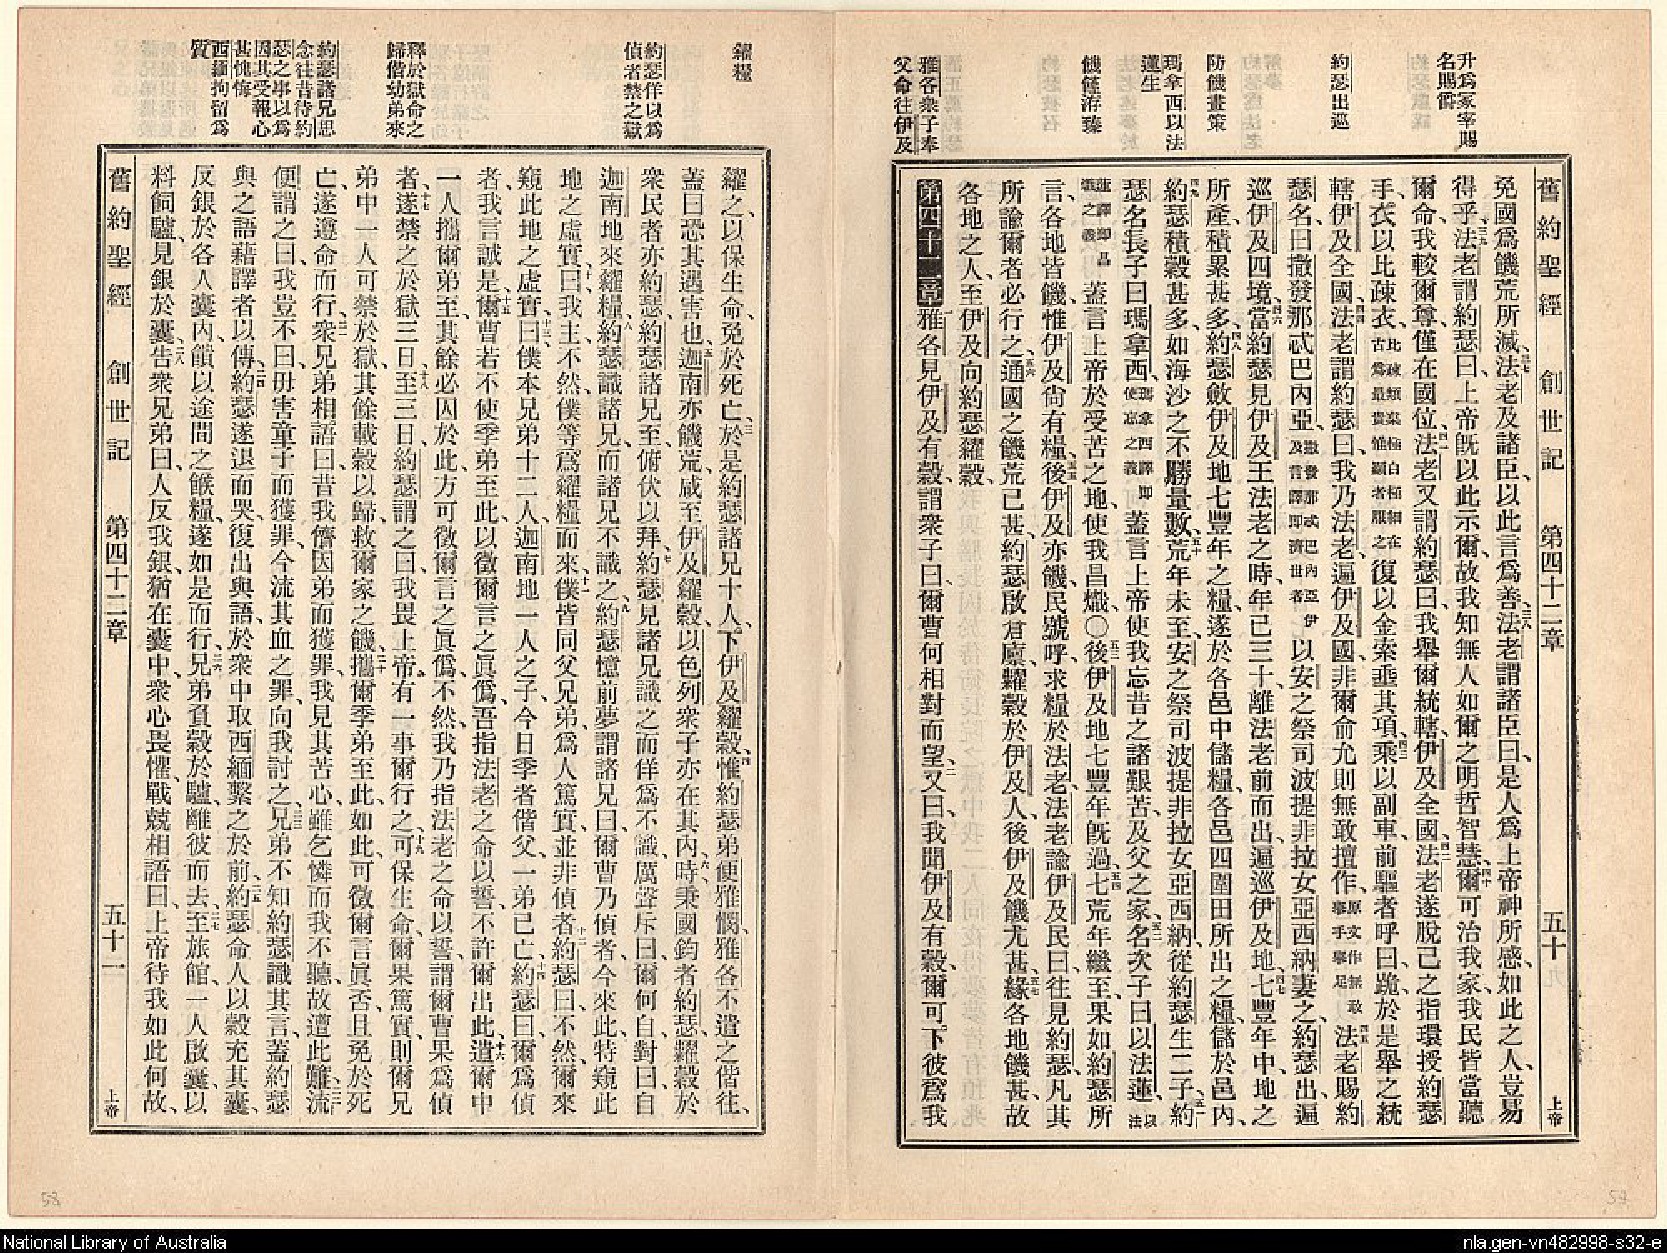 升爲冢宰賜
名賜爵
約瑟出巡
防饑畫策
瑪拿西以法
蓮生
饑饉洊臻
雅各衆子奉
父命往伊及
舊約聖經 創世記 第四十二章 五十 上帝
免國爲饑荒所滅、法老及諸臣、以此言爲善、法老謂諸臣曰、是人爲上帝神所感、如此之人、豈易
得乎、法老謂約瑟曰、上帝既以此示爾、故我知無人如爾之明哲智慧、爾可治我家、我民皆當聽
爾命、我較爾尊、僅在國位、法老又謂約瑟曰、我舉爾統轄伊及全國、法老遂脫己之指環、授約瑟
手、衣以此疎衣、復以金索垂其項、乘以副車、前驅者呼曰、跪、於是舉之統
轄伊及全國、法老謂約瑟曰、我乃法老、遍伊及國、非爾俞允、則無敢擅作、法老賜約
瑟名曰撒發那忒巴內亞、以安之祭司波提非拉女亞西納妻之、約瑟出、遍
巡伊及四境、當約瑟見伊及王法老之時、年已三十、離法老前而出、遍巡伊及地、七豐年中、地之
所產、積累甚多、約瑟斂伊及地七豐年之糧、遂於各邑中儲糧、各邑四圍田所出之糧、儲於邑內、
約瑟積穀甚多、如海沙之不勝量數、荒年未至、安之祭司波提非拉女亞西納、從約瑟生二子、約
瑟名長子曰瑪拿西、蓋言上帝使我忘昔之諸艱苦、及父之家、名次子曰以法蓮、
蓋言上帝於受苦之地、使我昌熾、〇後伊及地七豐年既過、七荒年繼至、果如約瑟所
言、各地皆饑、惟伊及尙有糧、後伊及亦饑、民號呼求糧於法老、法老諭伊及民曰、往見約瑟、凡其
所諭爾者、必行之、通國之饑荒已甚、約瑟啟倉廩、糶穀於伊及人、後伊及饑尤甚、緣各地饑甚、故
各地之人、至伊及向約瑟糴穀、
第四十二章雅各見伊及有穀、謂衆子曰、爾曹何相對而望、又曰、我聞伊及有穀、爾可下彼爲我
糴糧
約瑟佯以爲
偵者禁之獄
釋於獄命之
歸偕幼弟來
約瑟諸兄思
念往昔待約
瑟之事以爲
因其受報心
甚愧悔
西緬拘留爲
質
糴之、以保生命、免於死亡、於是約瑟諸兄十人、下伊及糴穀、惟約瑟弟便雅憫、雅各不遣之偕往、
蓋曰、恐其遇害也、迦南亦饑荒、咸至伊及糴穀、以色列衆子亦在其內、時秉國鈞者約瑟、糶穀於
衆民者亦約瑟、約瑟諸兄至、俯伏以拜、約瑟見諸兄識之、而佯爲不識、厲聲斥曰、爾何自、對曰、自
迦南地來糴糧、約瑟識諸兄、而諸兄不識之、約瑟憶前夢、謂諸兄曰、爾曹乃偵者、今來此、特窺此
地之虛實、曰、我主不然、僕等爲糴糧而來、僕皆同父兄弟、爲人篤實、並非偵者、約瑟曰、不然、爾來
窺此地之虛實、曰、僕本兄弟十二人、迦南地一人之子、今日季者偕父、一弟已亡、約瑟曰、爾爲偵
者、我言誠是、爾曹若不使季弟至此、以徵爾言之眞僞、吾指法老之命以誓、不許爾出此、遣爾中
一人、攜爾弟至、其餘必囚於此、方可徵爾言之眞僞、不然、我乃指法老之命以誓、謂爾曹果爲偵
者、遂禁之於獄三日、至三日、約瑟謂之曰、我畏上帝、有一事爾行之、可保生命、爾果篤實、則爾兄
弟中一人可禁於獄、其餘載穀以歸、救爾家之饑、攜爾季弟至此、如此可徵爾言眞否、且免於死
亡、遂遵命而行、衆兄弟相語曰、昔我儕因弟而獲罪、我見其苦心、雖乞憐而我不聽、故遭此難、流
便謂之曰、我豈不曰、毋害童子而獲罪、今流其血之罪、向我討之、兄弟不知約瑟識其言、蓋約瑟
與之語、藉譯者以傳、約瑟遂退而哭、復出與語、於衆中取西緬繫之於前、約瑟命人以穀充其囊、
反銀於各人囊內、饋以途間之餱糧、遂如是而行、兄弟負穀於驢、離彼而去、至旅館、一人啟囊以
料飼驢、見銀於囊、告衆兄弟曰、人反我銀、猶在囊中、衆心畏懼、戰兢相語曰、上帝待我如此何故、
舊約聖經 創世記 第四十二章 五十一 上帝
58
57
National Library of Australia
nla.gen-vn482998-s32-e